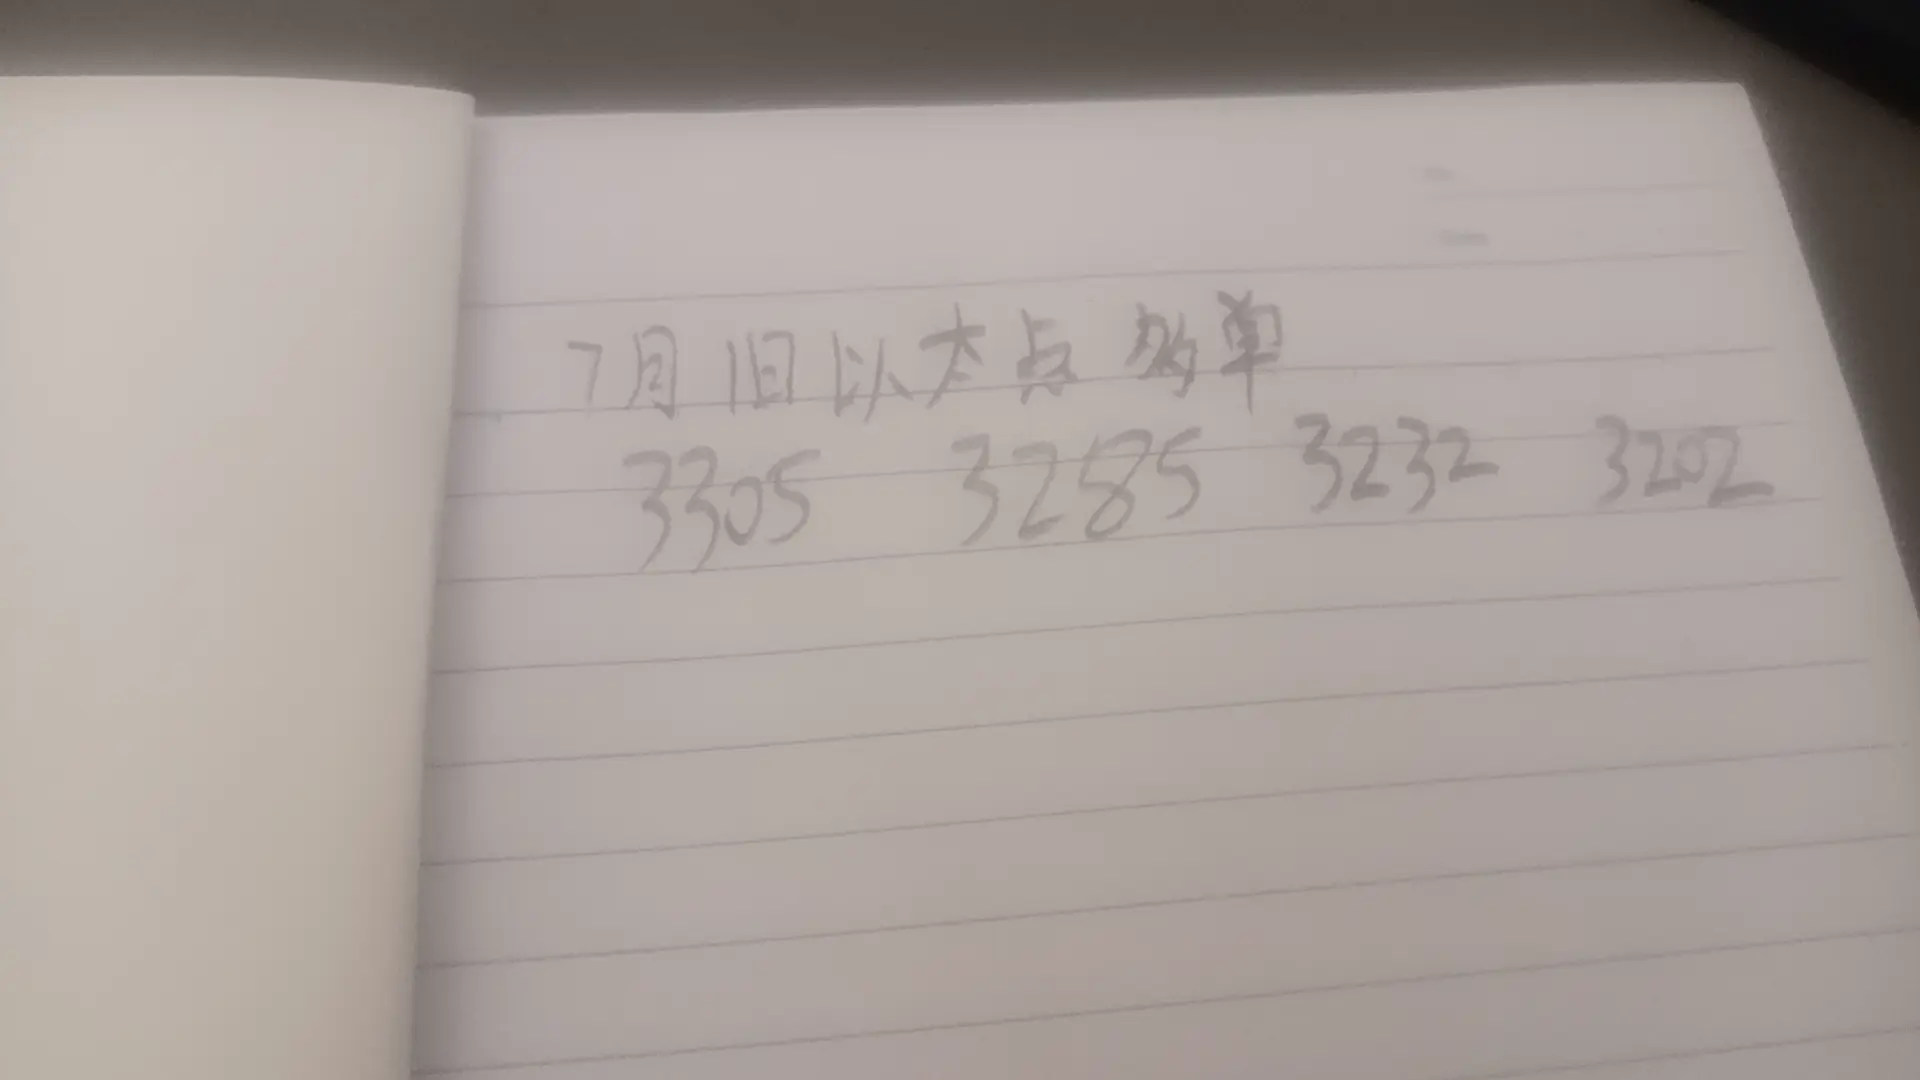 7月1日以太点多单
3305 3285 3232 3202